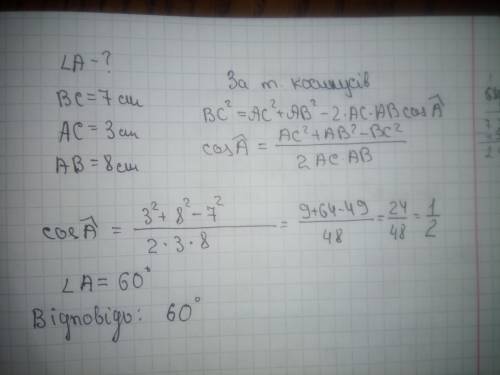 ∠A - ?
BC = 7 см
AC = 3 см
AB = 8 см
За т. косинусів
BC² = AC² + AB² - 2·AC·AB cos Â
cos Â = (AC² + AB² - BC²) / (2 AC·AB)
cos Â = (3² + 8² - 7²) / (2·3·8) = (9+64-49) / 48 = 24/48 = 1/2
∠A = 60°
Відповідь: 60°